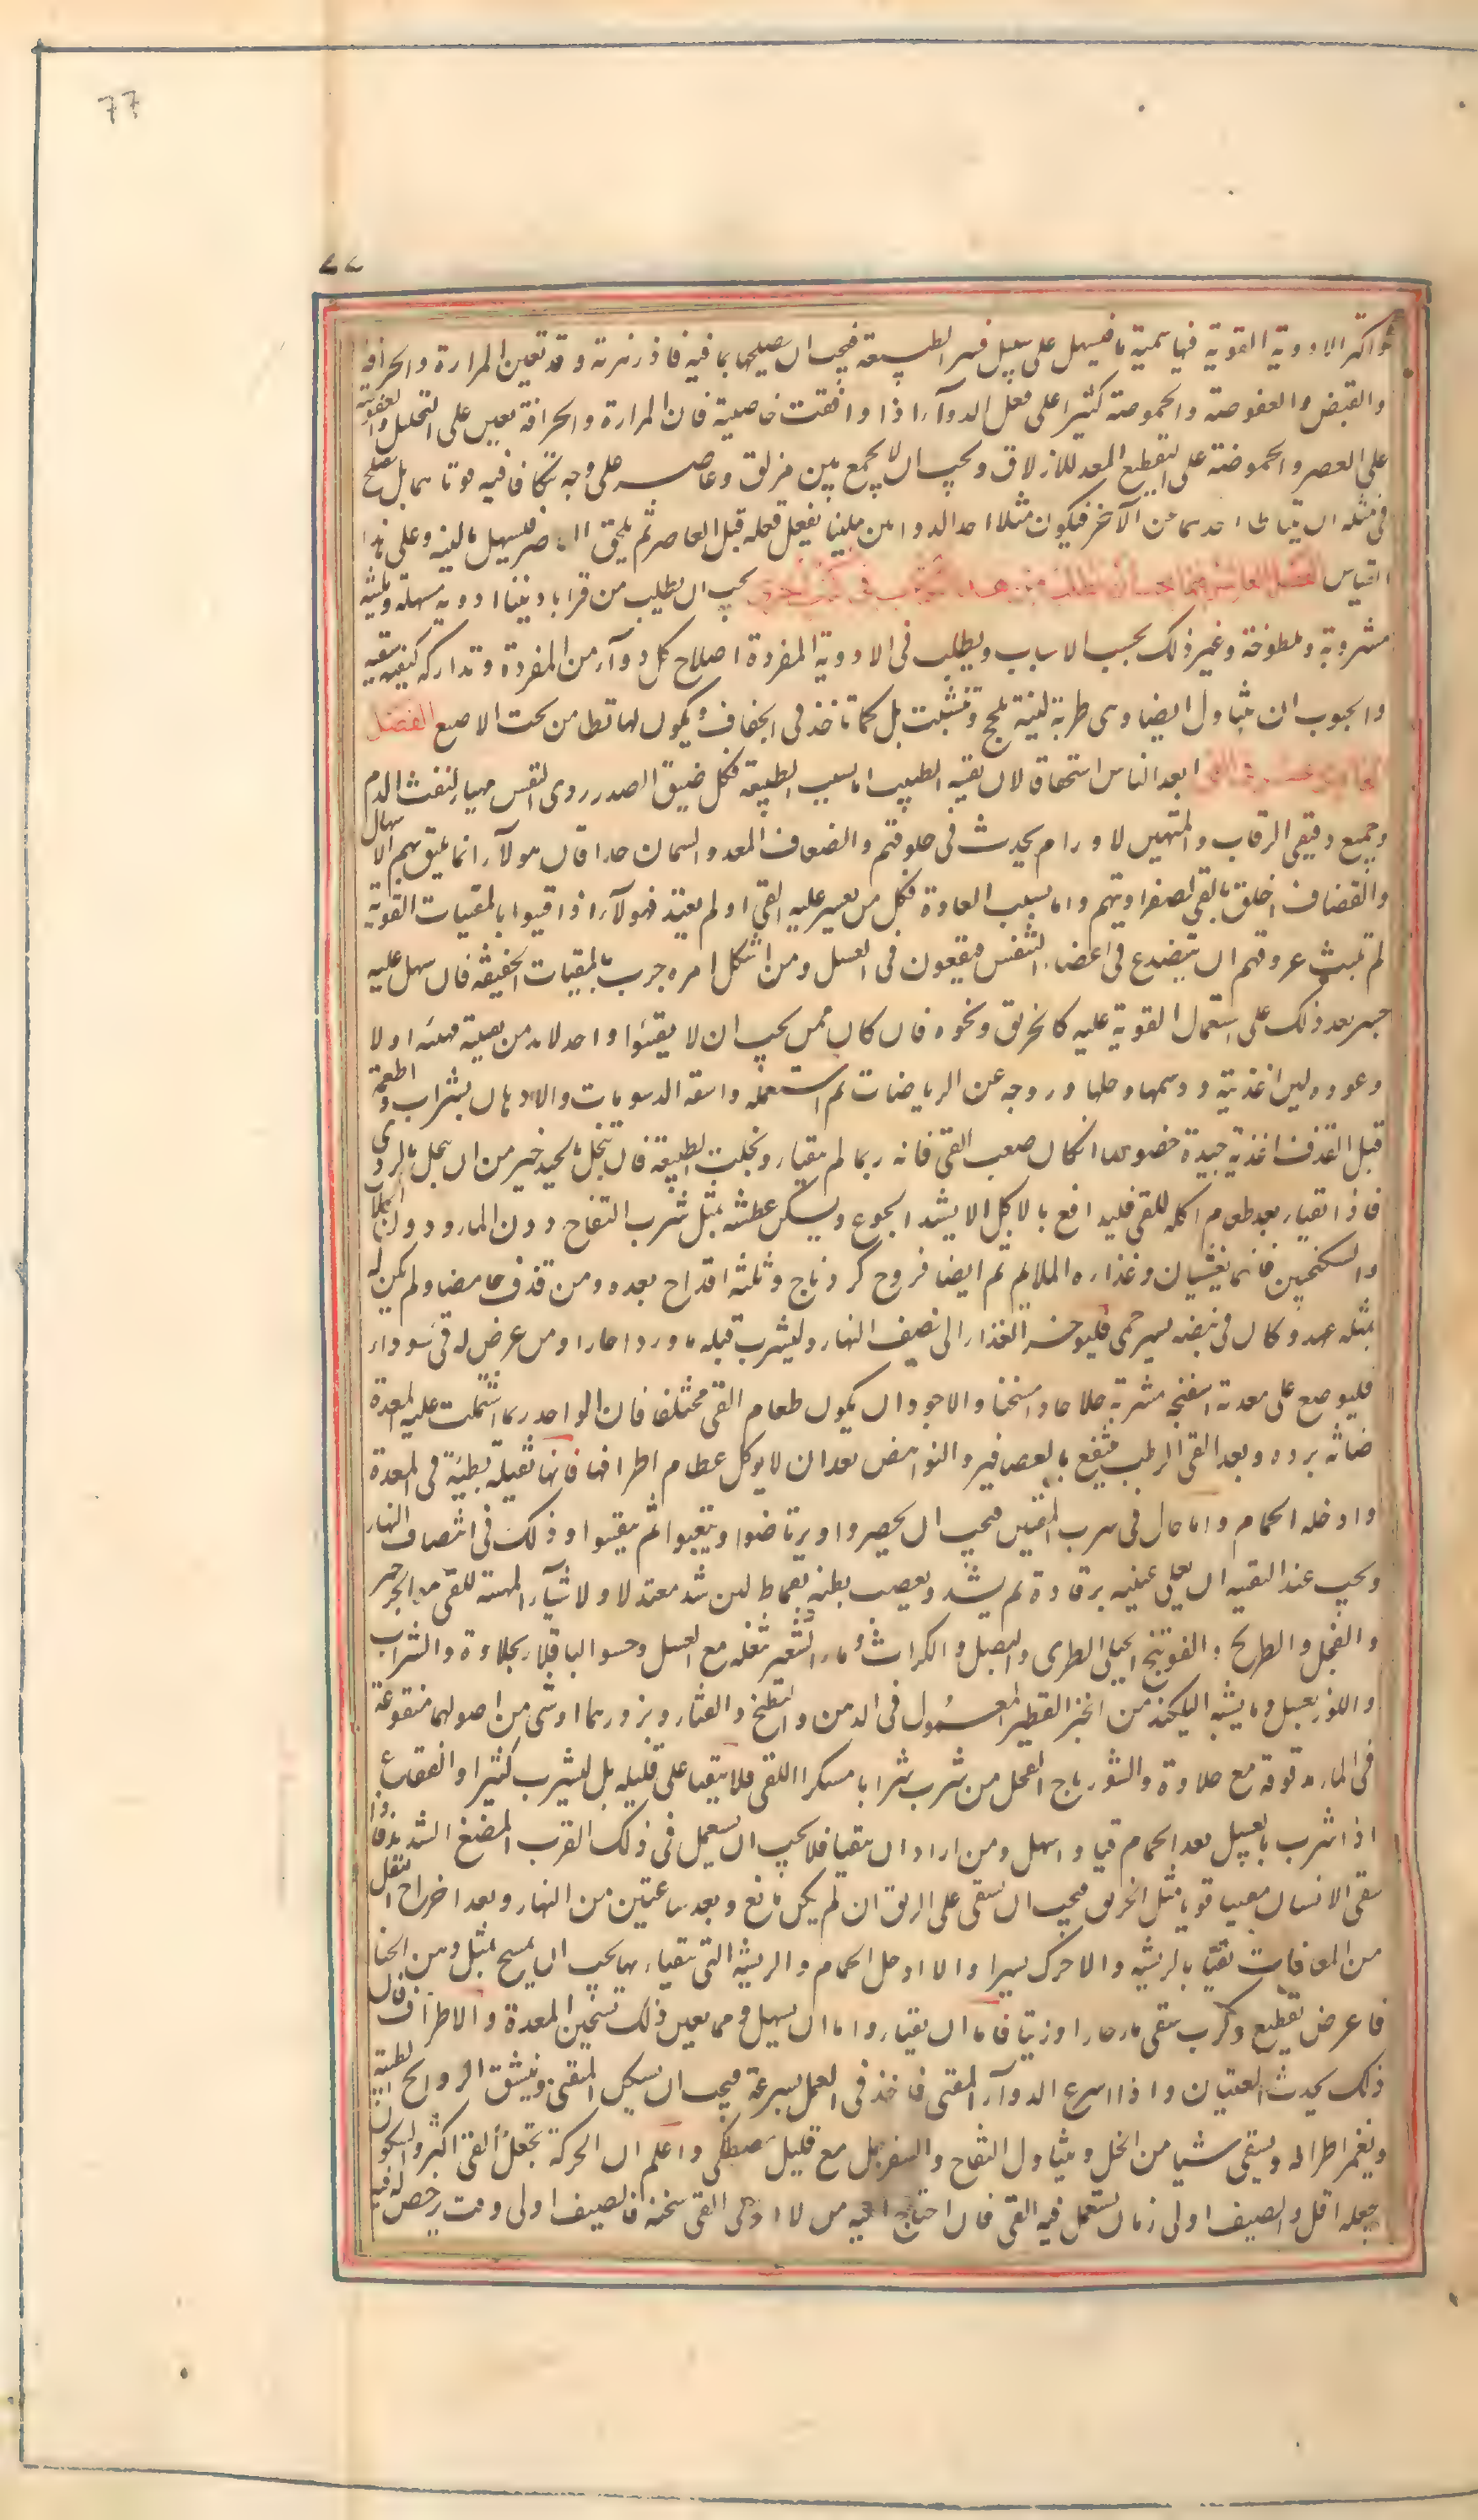 77
٧٧
واكثر الادوية القوية فيها سمية ما فيسهل على سبيل قسر الطبيعة فيجب ان يصلحها بما فيه فاذزهرية وقد تعين المرارة والحرافة
والقبض والعفوصة والحموضة كثيرا على فعل الدوآء اذا وافقت خاصية فان المرارة والحرافة تعين على التحليل والعفوصة
على العصر والحموضة على التقطيع المعد للازلاق ويجب ان لا يجمع بين مزلق وعاصر على وجه تتكافا فيه قوتاهما بل يصلح
فى مثله ان يتباطا احدهما عن الآخر فيكون مثلا احد الدوائين ملينا يفعل فعله قبل العاصر ثم يلحق العاصر فيسهل ما لينه وعلى هذا
القياس الفصل العاشر فيما يجب ان يطلب من هذا الكتاب فى كتب اخرى يجب ان يطلب من قراباديننا ادوية مسهلة وملينة
مشروبة وملطوخة وغير ذلك بحسب الاسباب ويطلب فى الادوية المفردة اصلاح كل دوآء من المفردة وتداركه كيفية سقيه
والحبوب ان يتناول ايضا وهى رطبة لينة تلجج وتتشبث بل كما تاخذ فى الجفاف ويكون لها تطامن تحت الاصبع الفصل
الحادى عشر فى القى ابعد الناس استحقاقا لان يقيه الطبيب اما بسبب الطبيعة فكل ضيق الصدر ردى النفس مهيا لنفث الدم
وجميع دقيقى الرقاب والمتهيين لاورام يحدث فى حلوقهم والضعاف المعد والسمان جدا فان هولآء انما يليق بهم الاسهال
والقضاف اخلق بالقى لصفراويتهم واما بسبب العادة فكل من يعسر عليه القى او لم يعتد فهولآء اذا قيوا بالمقيات القوية
لم تلبث عروقهم ان يتصدع فى اعضاء التنفس فيقعون فى السل ومن اشكل امره جرب بالمقيات الخفيفة فان سهل عليه
جسر بعد ذلك على استعمال القوية عليه كالخربق ونحوه فان كان ممن يجب ان لا يقيئوا واحد لابد من تقيته فهيئه اولا
وعوده ولين اغذيته ودسمها وحلها وروحه عن الرياضات ثم استعمله واسقه الدسومات والادهان بشراب واطعمه
قبل القذف اغذية جيدة خصوصا ان كان صعب القى فانه ربما لم يتقيا وغلبت الطبيعة فان تنحل بالجيد خير من ان ينحل بالردى
فاذا تقيا بعد طعام اكله للقى فليدافع بالاكل الا يشتد الجوع ويسكن عطشه بمثل شرب التفاح دون الماء ودون الجلاب
والسكنجبين فانهما يغثيان وغذاره الملائم له ايضا فروج كردناج وثلثة اقداح بعده ومن قذف حامضا ولم يكن له
بمثله عهد وكان فى نبضه يسير حمى فليوخر الغذاء الى نصف النهار وليشرب قبله ماورد احارا ومن عرض له قى سوداء
فليوضع على معدته اسفنجة مشربة خلا حارا مسخنا والاجود ان يكون طعام القى مختلفا فان الواحد ربما اشتملت عليه المعدة
ضانة برده وبعد القى الرطب ينتفع بالعصافير والنواهض بعد ان لا يوكل عظام اطرافها فانها ثقيلة بطيئة فى المعدة
وادخله الحمام واما حال فى شرب المقيى فيجب ان يحضروا ويرتاضوا ويتعبوا ثم يتقيئوا وذلك فى انتصاف النهار
ويجب عند التقيه ان يعلى عينيه برفادة ثم يشد ويعصب بطنه بقماط لين شد معتدلا والاشيآء المهيئة للقى هى الجرجير
والفجل والطريخ والفوتنج الجبلى الطرى والبصل والكراث وماء الشعير بثفله مع العسل وحسو الباقلا بحلاوة والشراب
واللوز بعسل وما يشبه اليكنه من الخبز الفطير المعمول فى الدهن والبطيخ والقثاء وبزورهما او شى من اصولهما منقوعة
فى الماء مدقوقة مع حلاوة والشورباج الفجل من شرب شرابا مسكرا للقى فلا يتقيا على قليله بل ليشرب كثيرا والفقاع
اذا شرب بالعسل بعد الحمام قيا واسهل ومن اراد ان يتقيا فلا يجب ان يستعمل فى ذلك القرب المضغ الشديد واذا
سقى الانسان مقييا قويا مثل الخربق فيجب ان يسقى على الريق ان لم يكن مانع وبعد ساعتين من النهار وبعد اخراج الثفل
من المعا فان تقيا بالريشة والا حرك يسيرا والا ادخل الحمام والريشة التى يتقيا بها يجب ان يمسح بمثل دهن الحنا
فاعرض تقطيع وكرب سقى ماء حارا او زيتا فاما ان يتقيا واما ان يسهل ومما يعين ذلك تسخين المعدة والاطراف فان
ذلك يحدث الغثيان واذا اسرع الدوآء المقيى فاخذ فى العمل بسرعة فيجب ان يسكن المتقيى وينشق الروايح الطيبة
ويغمر اطرافه ويسقى شيا من الخل ويتناول التفاح والسفرجل مع قليل مصطكى واعلم ان الحركة تجعل القى اكثر والسكون
يجعله اقل والصيف اولى زمان يستعمل فيه القى فان احتاج اليه من لا يواتى القى سحنته فالصيف اولى وقت يرخص له فيه